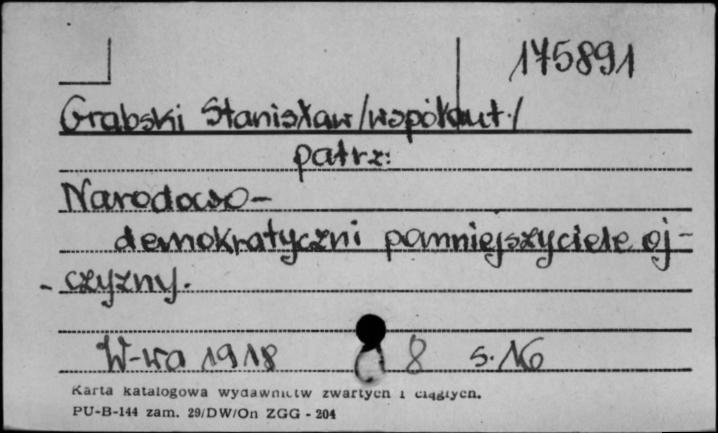 175891
Grabski Stanisław/współaut./
patrz:
Narodowo-
demokratyczni pomniejszyciele oj-
- czyzny.
W-wa 1918 8 s. 16
Karta katalogowa wydawnictw zwartych i ciągłych.
PU-B-144 zam. 29/DW/On ZGG - 204